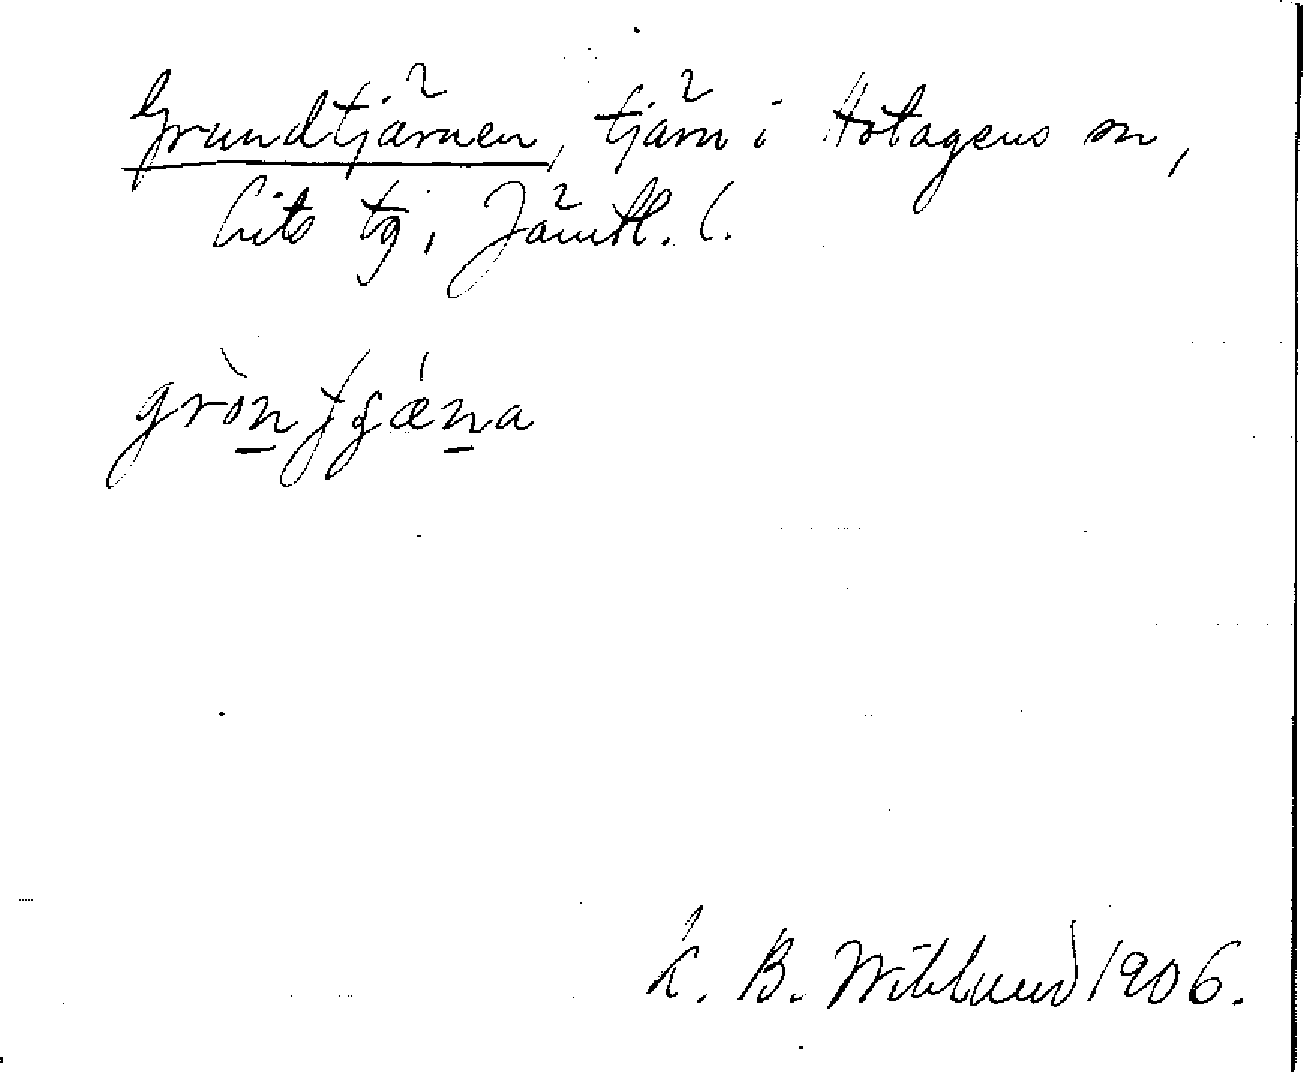 Grundtjärnen, tjärn i Hotagens sn,
Lits tg, Jämtl. l.
gròn̲tʃgǽn̲a
K. B. Wiklund 1906.